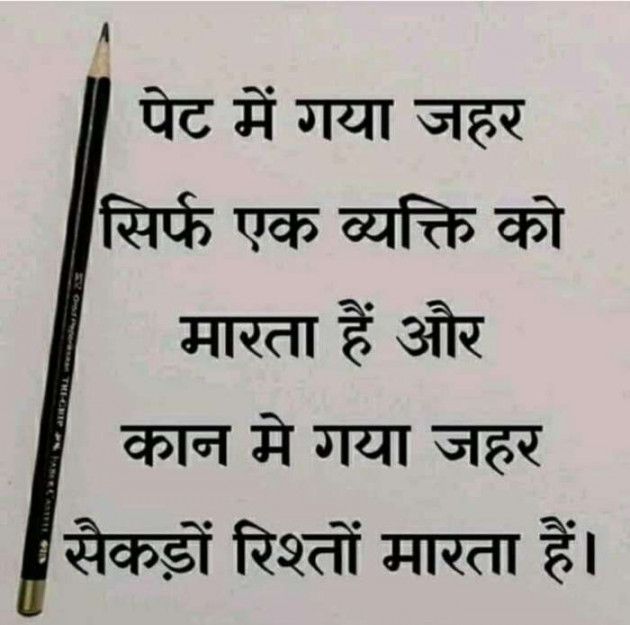 पेट में गया जहर
सिर्फ एक व्यक्ति को
मारता हैं और
कान मे गया जहर
सैकड़ों रिश्तों मारता हैं।
TRI-GRIP